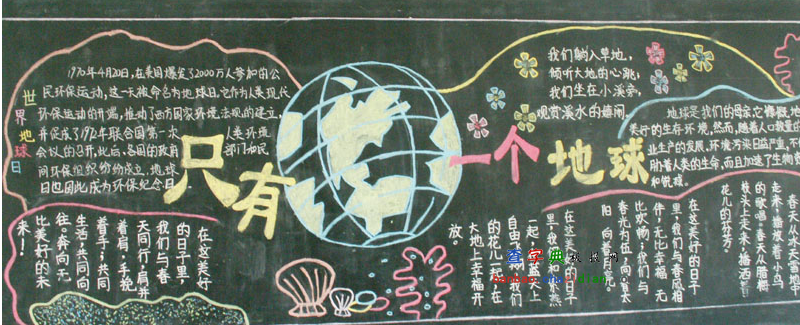 世界地球日
1970年4月20日,在美国爆发了2000万人参加的公
民环保运动,这一天被命名为地球日,它作为人类现代
环保运动的开端,推动了西方国家环境法规的建立,
并促成了1972年联合国第一次人类环境
会议的召开,此后,各国的政府部门和民
间环保组织纷纷成立,地球
日也因此成为环保纪念日。
只有一个地球
我们躺入草地,
倾听大地的心跳;
我们坐在小溪旁,
观赏溪水的嬉闹。
地球是我们的母亲,它慷慨地
美好的生存环境,然而,随着人口
业生产的发展,环境污染日益严重,不
胁着人类的生命,而且加速了生物
和
在这美好
的日子里,
我们与春
天同行,肩并
着肩,手挽
着手,共同
生活,共同向
往。奔向无
比美好的未
来!
春天从冰天雪地
走来,播放着小鸟
的歌唱,春天从腊梅
枝头上走来,播洒着
花儿的芬芳。
在这美好的日子
里,我们与春风相
伴,无比幸福,无
比欢畅;我们与
春光为伍,向着太
阳,向着
在这美好的日子
里,我们和
一起,在蓝天上
自由
的花儿一起,在
大地上幸福开
放。
查字典